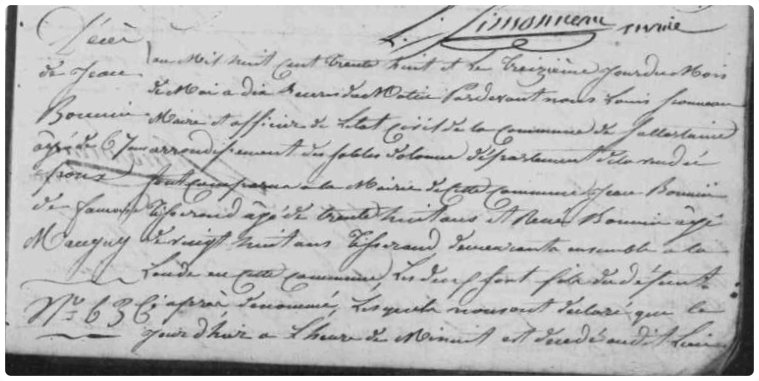 L. Simonneau maire
Décès
de Jean
Bonnin
âgé de 67 ans
époux
de
Mauguy
N.º 63
an Mil huit cent trente huit et le treizième jour du Mois
de Mai a dix heures du Matin Pardevant nous Louis Simonneau
Maire et officier de l'état Civil de la commune de Sallertaine
arrondissement des sables d'olonne département de la vendée
sont comparus a la Mairie de Cette Commune Jean Bonnin
Tisserand âgé de trente huit ans et René Bonnin âgé
de vingt huit ans Tisserand demeurants ensemble a la
Lande en Cette Commune, Les deux sont fils du défunt
Ci après dénommé, Lesquels nous ont déclaré que le
jour d'hier a L'heure de Minuit est décédé audit Lieu